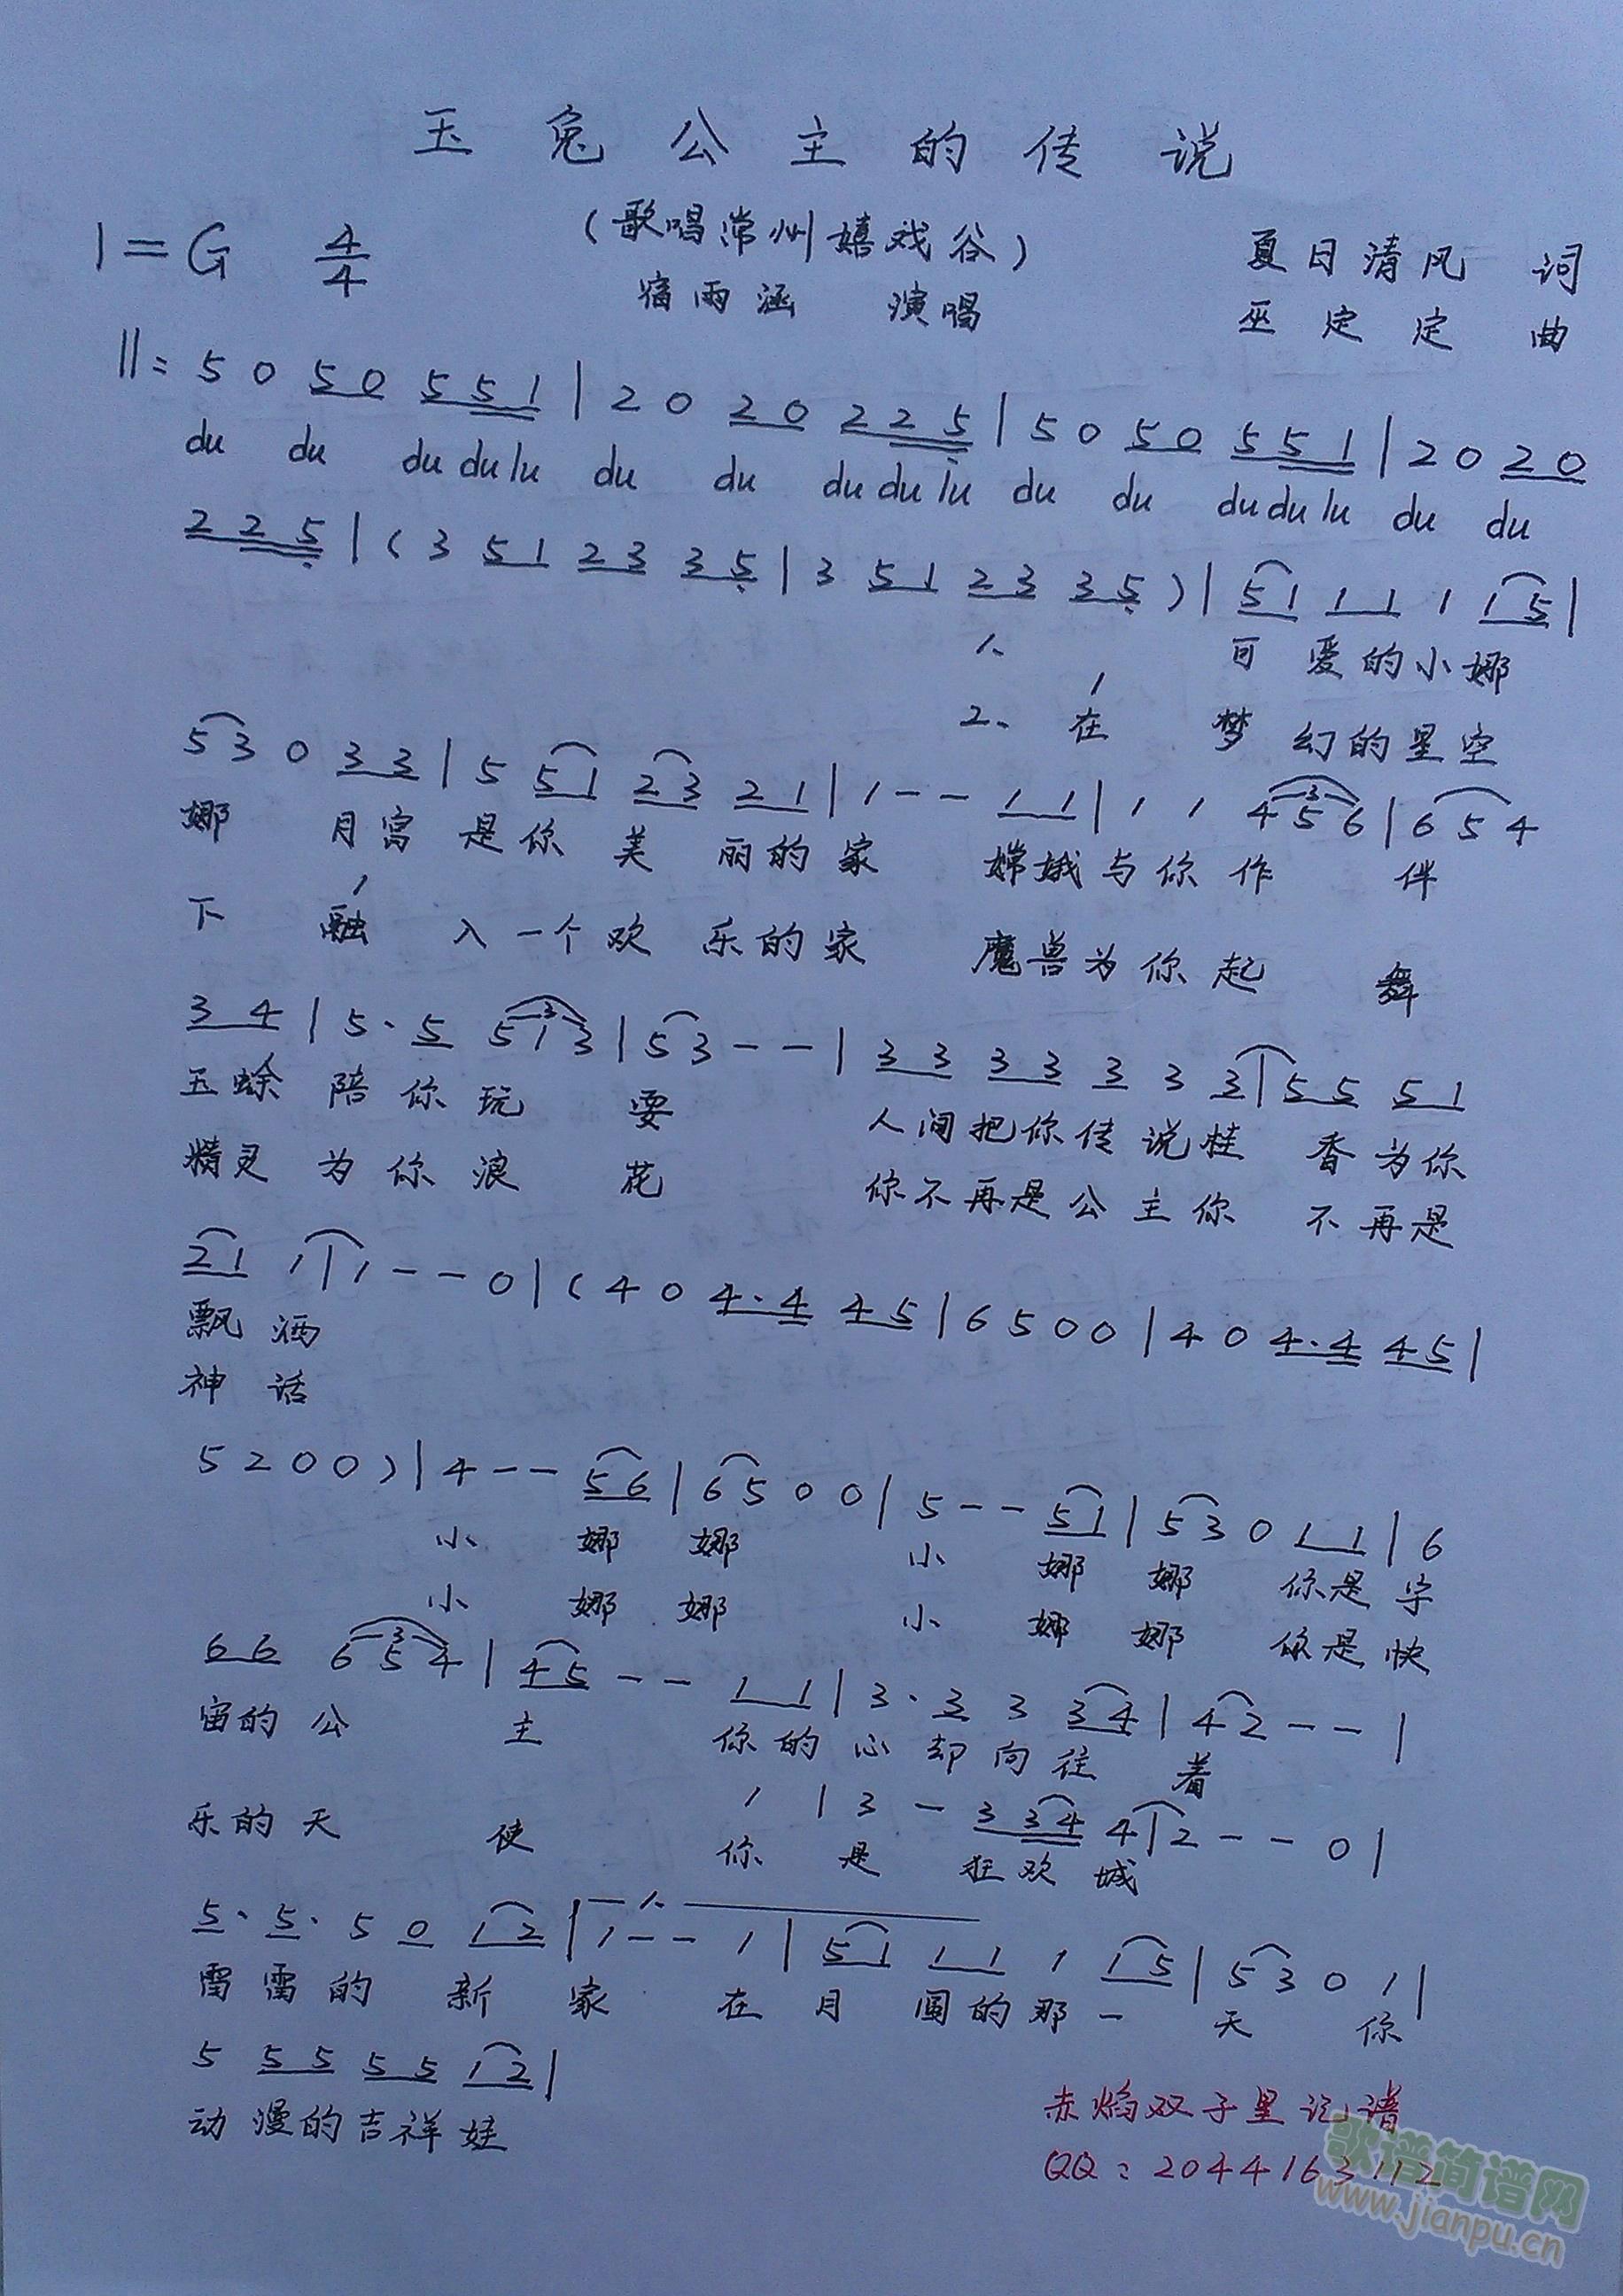 玉兔公主的传说
（歌唱常州嬉戏谷）
1=G 4/4
夏日清风 词
宿雨涵 演唱
巫定定 曲
||: 5 0 5 0 5 5 1 | 2 0 2 0 2 2 5 | 5 0 5 0 5 5 1 | 2 0 2 0
du du du du lu du du du du lu du du du du lu du du
2 2 5 | ( 3 5 1 2 3 3 5 | 3 5 1 2 3 3 5 ) | 5 1 1 1 1 1 5 |
1、 可爱的小娜
2、 在 梦幻的星空
5 3 0 3 3 | 5 5 1 2 3 2 1 | 1 - - 1 1 | 1 1 4 5 6 | 6 5 4
娜 月宫是你美丽的家 嫦娥与你作伴
下 融入一个欢乐的家 魔兽为你起舞
3 4 | 5 · 5 5 1 3 | 5 3 - - | 3 3 3 3 3 3 3 | 5 5 5 1
玉蜍陪你玩耍 人间把你传说桂香为你
精灵为你浪花 你不再是公主你不再是
2 1 1 | 1 - - 0 | ( 4 0 4 · 4 4 5 | 6 5 0 0 | 4 0 4 · 4 4 5 |
飘洒
神话
5 2 0 0 ) | 4 - - 5 6 | 6 5 0 0 | 5 - - 5 1 | 5 3 0 1 1 | 6
小 娜娜 小 娜娜 你是宇
小 娜娜 小 娜娜 你是快
6 6 6 5 4 | 4 5 - - 1 1 | 3 · 3 3 3 4 | 4 2 - - |
宙的公主 你的心却向往着
1 | 3 - 3 3 4 4 | 2 - - 0 |
乐的天使 你是狂欢城
5 · 5 · 5 0 1 2 | 1 - - 1 | 5 1 1 1 1 1 5 | 5 3 0 1 |
1、
雷雷的新家 在月圆的那一天 你
5 5 5 5 5 1 2 |
动漫的吉祥娃
赤焰双子星记谱
QQ：2044163112
歌谱简谱网
www.jianpu.cn